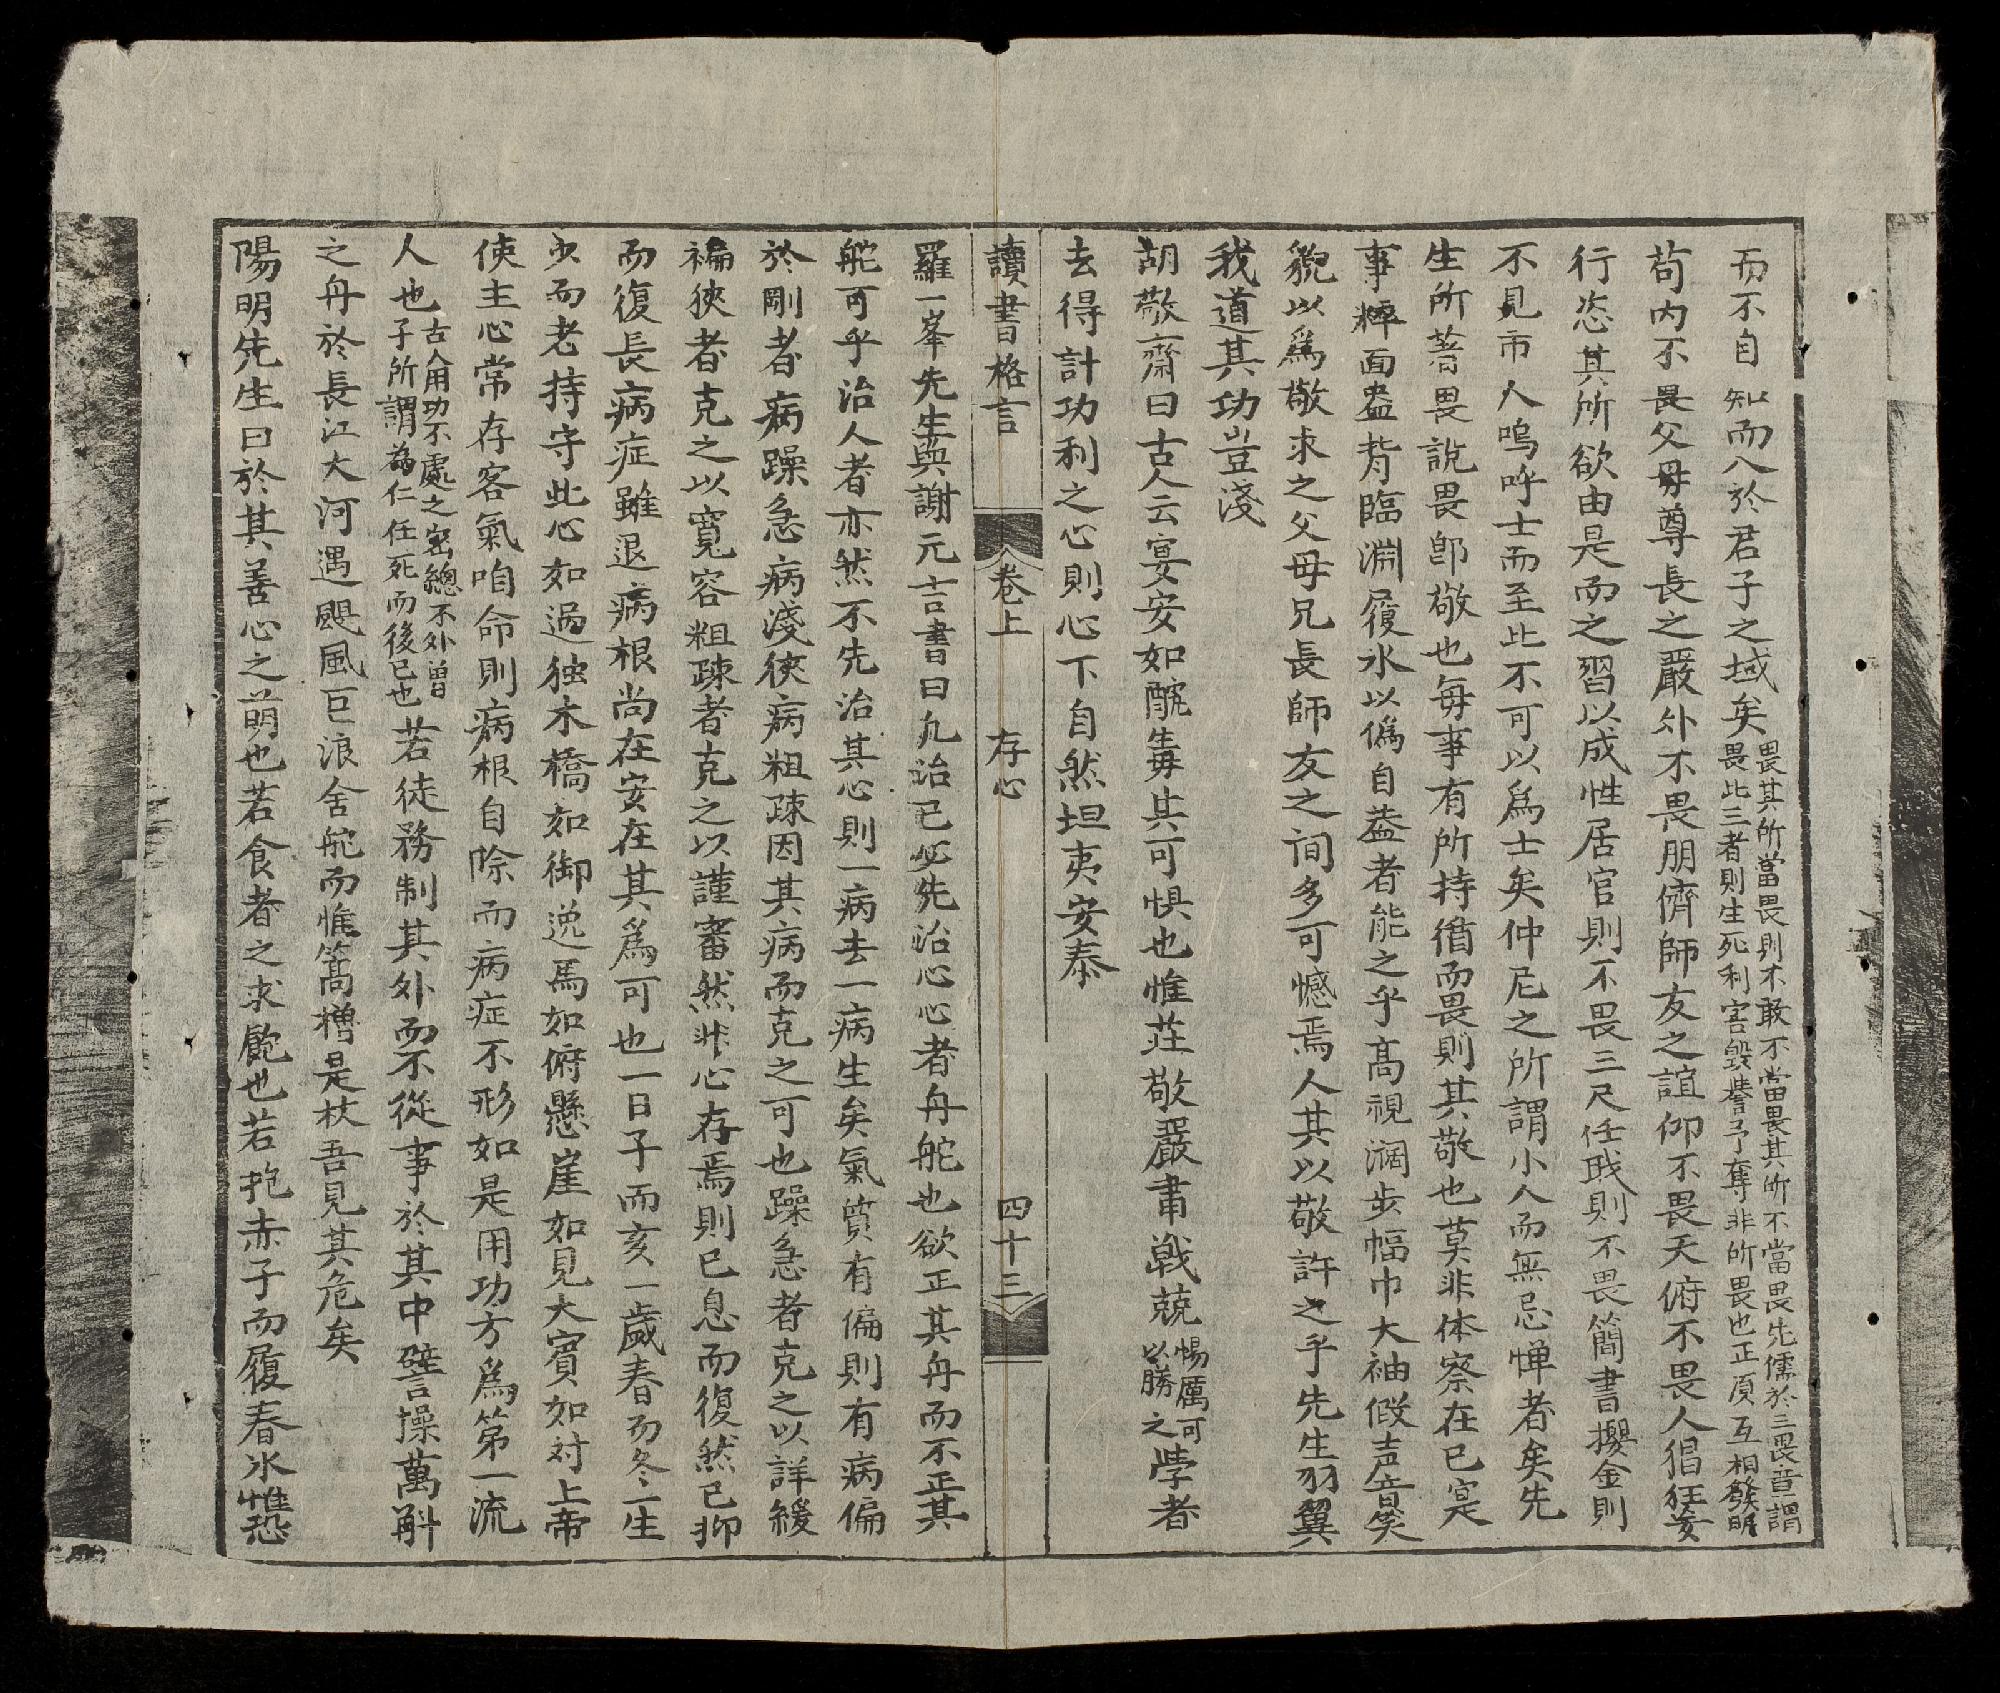 而不自知而入於君子之域矣畏其所當畏則不敢不當畏其所不當畏先儒於三畏章謂畏此三者則生死利害毀譽予奪非所畏也正頂互相發明
苟内不畏父母尊長之嚴外不畏朋儕師友之誼仰不畏天俯不畏人猖狂妄
行恣其所欲由是而之習以成性居官則不畏三尺任戝則不畏簡書攫金則
不見市人嗚呼士而至此不可以爲士矣仲尼之所謂小人而無忌憚者矣先
生所著畏說畏即敬也每事有所持循而畏則其敬也莫非体察在已寔
事粹面盎背臨淵履氷以僞自益者能之乎高視濶步幅巾大袖假声音笑
貌以爲敬求之父母兄長師友之间多可憾焉人其以敬許之乎先生羽翼
我道其功豈淺
胡敬齋曰古人云宴安如酖毒其可惧也惟莊敬嚴肅戰兢惕厲可以勝之學者
去得計功利之心則心下自然坦夷安泰
讀書格言 卷上 存心 四十三
羅一峯先生與謝元吉書曰凡治已必先治心心者舟舵也欲正其舟而不正其
舵可乎治人者亦然不先治其心則一病去一病生矣氣質有偏則有病偏
於剛者病躁急病淺狹病粗疎因其病而克之可也躁急者克之以詳緩
褊狹者克之以寬容粗疎者克之以謹審然非心存焉則已息而復然已抑
而復長病症雖退病根尚在安在其爲可也一日子而亥一歲春而冬一生
少而老持守此心如過独木橋如御逸馬如俯懸崖如見大賓如対上帝
使主心常存客氣咱命則病根自除而病症不形如是用功方爲第一流
人也古人用功不處之密總不外曽子所謂為仁任死而後已也若徒務制其外而不從事於其中譬操萬斛
之舟於長江大河遇颶風巨浪舍舵而惟篙櫓是杖吾見其危矣
陽明先生曰於其善心之萌也若食者之求飽也若抱赤子而履春氷惟恐